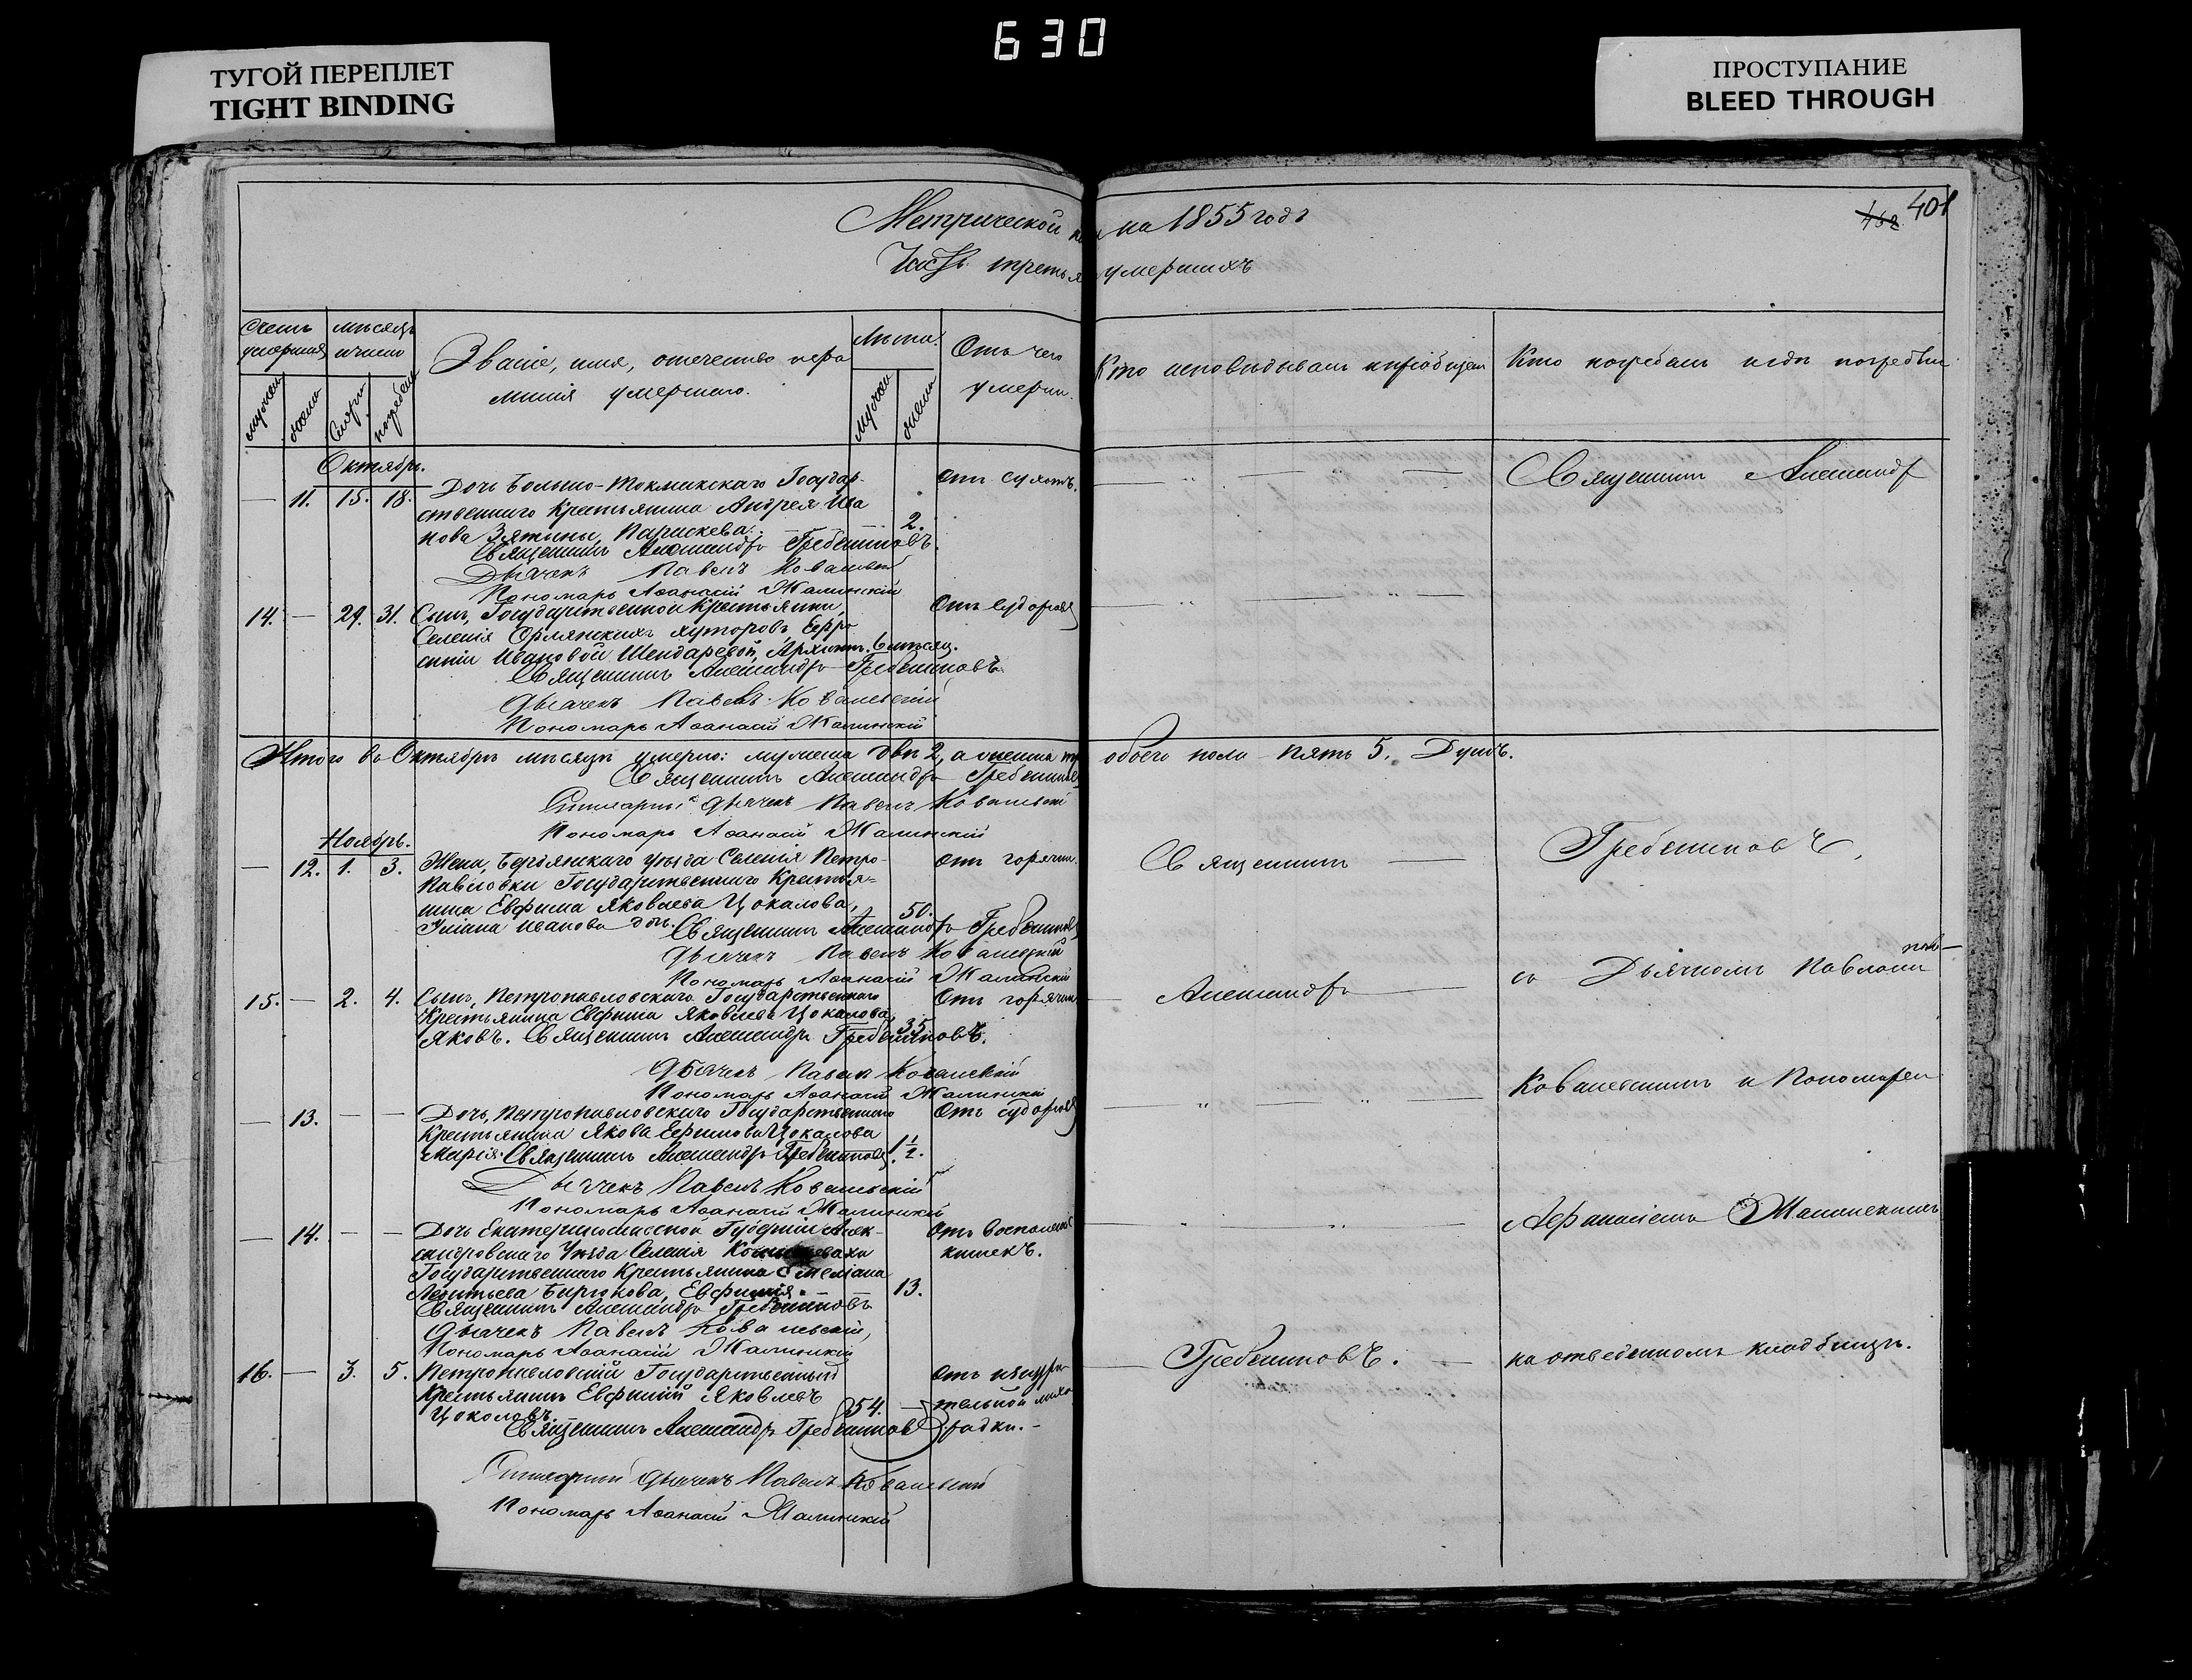 630
ТУГОЙ ПЕРЕПЛЕТ
TIGHT BINDING
ПРОСТУПАНИЕ
BLEED THROUGH
401
Метрической на 1855 годъ
Часть третья умершихъ
Счетъ умершихъ
мѣсяцъ и число
Званіе, имя, отечество и фа
милія умершаго.
Лѣта.
Отъ чего
умеръ.
Кто исповѣдывалъ и пріобщалъ
Кто погребалъ и гдѣ погребены
Октябрь.
— 11. 15. 18.
Дочь Больше-Токмакскаго Государ-
ственнаго Крестьянина Андрея Ива
нова Зятины, Параскева.
2.
Священникъ Александръ Гребенниковъ.
Дьячекъ Павелъ Ковалевскій
Пономарь Аѳанасій Жалинскій
Священникъ Александръ
14. — 29. 31.
Сынъ, Государственной Крестьянки,
Селенія Орлянскихъ хуторовъ, Ефро
синіи Ивановой Шендаревой, 6 мѣсяц.
Отъ судорогъ
Священникъ Александръ Гребенниковъ
Дьячекъ Павелъ Ковалевскій
Пономарь Аѳанасій Жалинскій
Итого въ Октябрѣ мѣсяцѣ умерло: мужеска два 2, а женска обоего пола пять 5. Душъ.
Священникъ Александръ Гребенниковъ
Дьячекъ Павелъ Ковалевскій
Пономарь Аѳанасій Жалинскій
Ноябрь.
— 12. 1. 3.
Жена, Бердянскаго уѣзда Селенія Петро-
павловки Государственнаго Крестья=
нина Евфима Яковлева Цокалова,
Иванова дочь.
50.
Отъ горячки.
Священникъ Александръ Гребенниковъ
Дьячекъ Павелъ Ковалевскій
Пономарь Аѳанасій Жалинскій
Священникъ
Гребенниковъ,
15. — 2. 4.
Сынъ, Петропавловскаго Государственнаго
Крестьянина Евфима Яковлева Цокалова,
Яковъ. Священникъ Александръ Гребенниковъ.
35
Отъ горячки
Дьячекъ Павелъ Ковалевскій
Пономарь Аѳанасій Жалинскій
Александръ
съ Дьячкомъ Павломъ
— 13. — —
Дочь, Петропавловскаго Государственнаго
Крестьянина Якова Ефимова Цокалова
Марія. Священникъ Александръ Гребенниковъ
1½.
Отъ судорогъ
Дьячекъ Павелъ Ковалевскій
Пономарь Аѳанасій Жалинскій
Ковалевскимъ и Пономаремъ
— 14. — —
Дочь Екатеринославской Губерніи Алек-
сандровскаго Уѣзда Селенія
Государственнаго Крестьянина Емеліана
Леонтьева Бирюкова, Евфимія.
13.
Отъ воспаленія
кишекъ.
Священникъ Александръ Гребенниковъ
Дьячекъ Павелъ Ковалевскій,
Пономарь Аѳанасій Жалинскій
Афанасіемъ Жалинскимъ
16. — 3. 5.
Петропавловскій Государственный
Крестьянинъ Евфимій Яковлевъ
Цокаловъ.
54.
Отъ изнури-
тельной лихо
радки.
Священникъ Александръ Гребенниковъ
Дьячекъ Павелъ Ковалевскій
Пономарь Аѳанасій Жалинскій
Гребенниковъ.
на отведенномъ кладбищѣ.